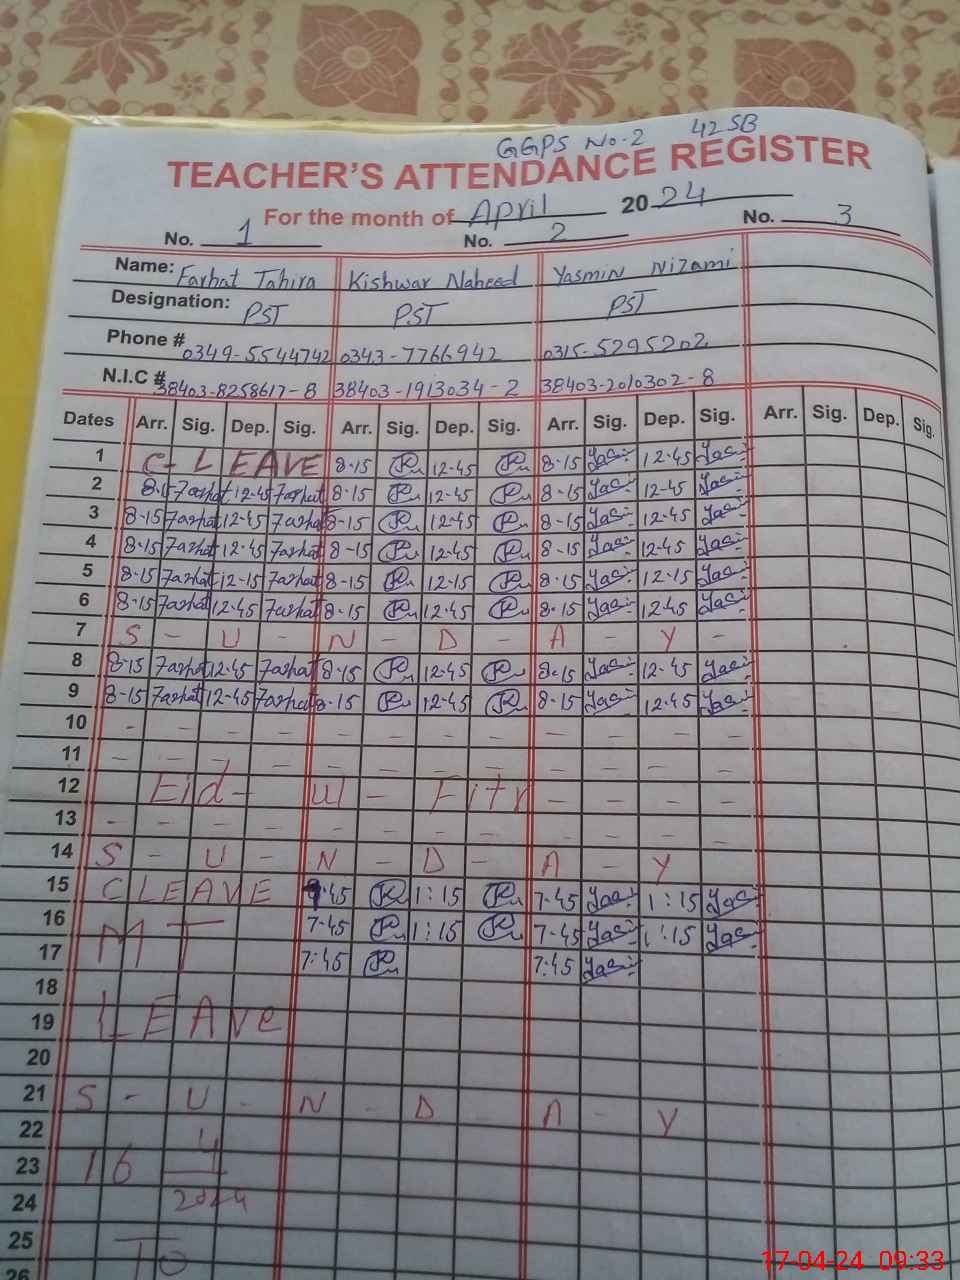 GGPS No-2 42 SB
TEACHER'S ATTENDANCE REGISTER
For the month of April 2024
No. 1 No. 2 No. 3
Name: Farhat Tahira Kishwar Naheed Yasmin Nizami
Designation: PST PST PST
Phone # 0349-5544742 0343-7766942 0315-5295202
N.I.C # 38403-8258617-8 38403-1913034-2 38403-2010302-8
Dates Arr. Sig. Dep. Sig. Arr. Sig. Dep. Sig. Arr. Sig. Dep. Sig. Arr. Sig. Dep. Sig.
1 C-LEAVE 8-15 12-45 8-15 Yas 12-45 Yas
2 8-15 Farhat 12-45 Farhat 8-15 12-45 8-15 Yas 12-45 Yas
3 8-15 Farhat 12-45 Farhat 8-15 12-45 8-15 Yas 12-45 Yas
4 8-15 Farhat 12-45 Farhat 8-15 12-45 8-15 Yas 12-45 Yas
5 8-15 Farhat 12-15 Farhat 8-15 12-15 8-15 Yas 12-15 Yas
6 8-15 Farhat 12-45 Farhat 8-15 12-45 8-15 Yas 12-45 Yas
7 S - U - N - D - A - Y -
8 8-15 Farhat 12-45 Farhat 8-15 12-45 8-15 Yas 12-45 Yas
9 8-15 Farhat 12-45 Farhat 8-15 12-45 8-15 Yas 12-45 Yas
10 - - - - - - - - - - - -
11 - - - - - - - - - - - -
12 Eid - ul - Fitr - - - -
13 - - - - - - - - - - - -
14 S - U - N - D - A - Y
15 C LEAVE 7-45 1:15 7-45 Yas 1:15 Yas
16 7-45 1:15 7-45 Yas 1:15 Yas
M T
17 7:45 7:45 Yas
18
19 LEAVE
20
21 S - U - N - D A - Y
22
23 16 4
24 2024
25 To
26
17-04-24 09:33